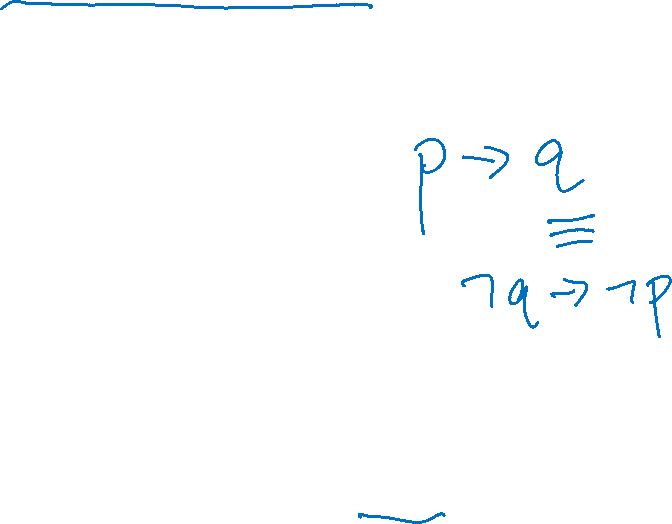 p → q
≡
¬q → ¬p